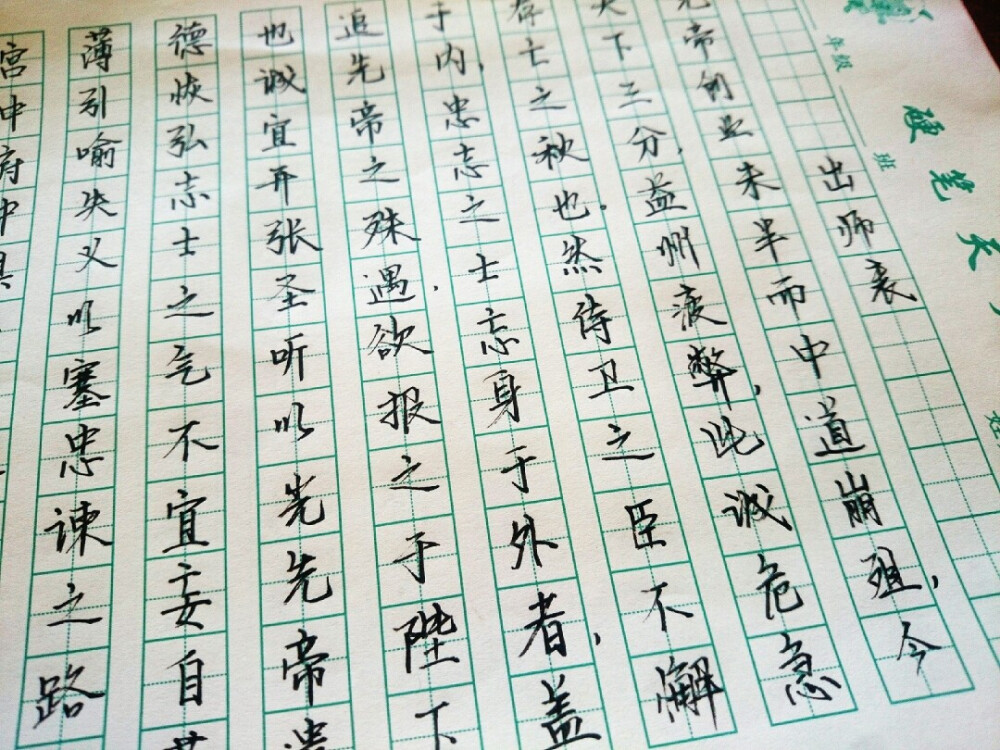 硬笔天
年级 班
姓
出师表
先帝创业未半而中道崩殂,今
天下三分,益州疲弊,此诚危急
存亡之秋也.然侍卫之臣不懈
于内,忠志之士忘身于外者,盖
追先帝之殊遇.欲报之于陛下
也诚宜开张圣听以光先帝遗
德恢弘志士之气不宜妄自菲
薄引喻失义以塞忠谏之路
宫中府中俱